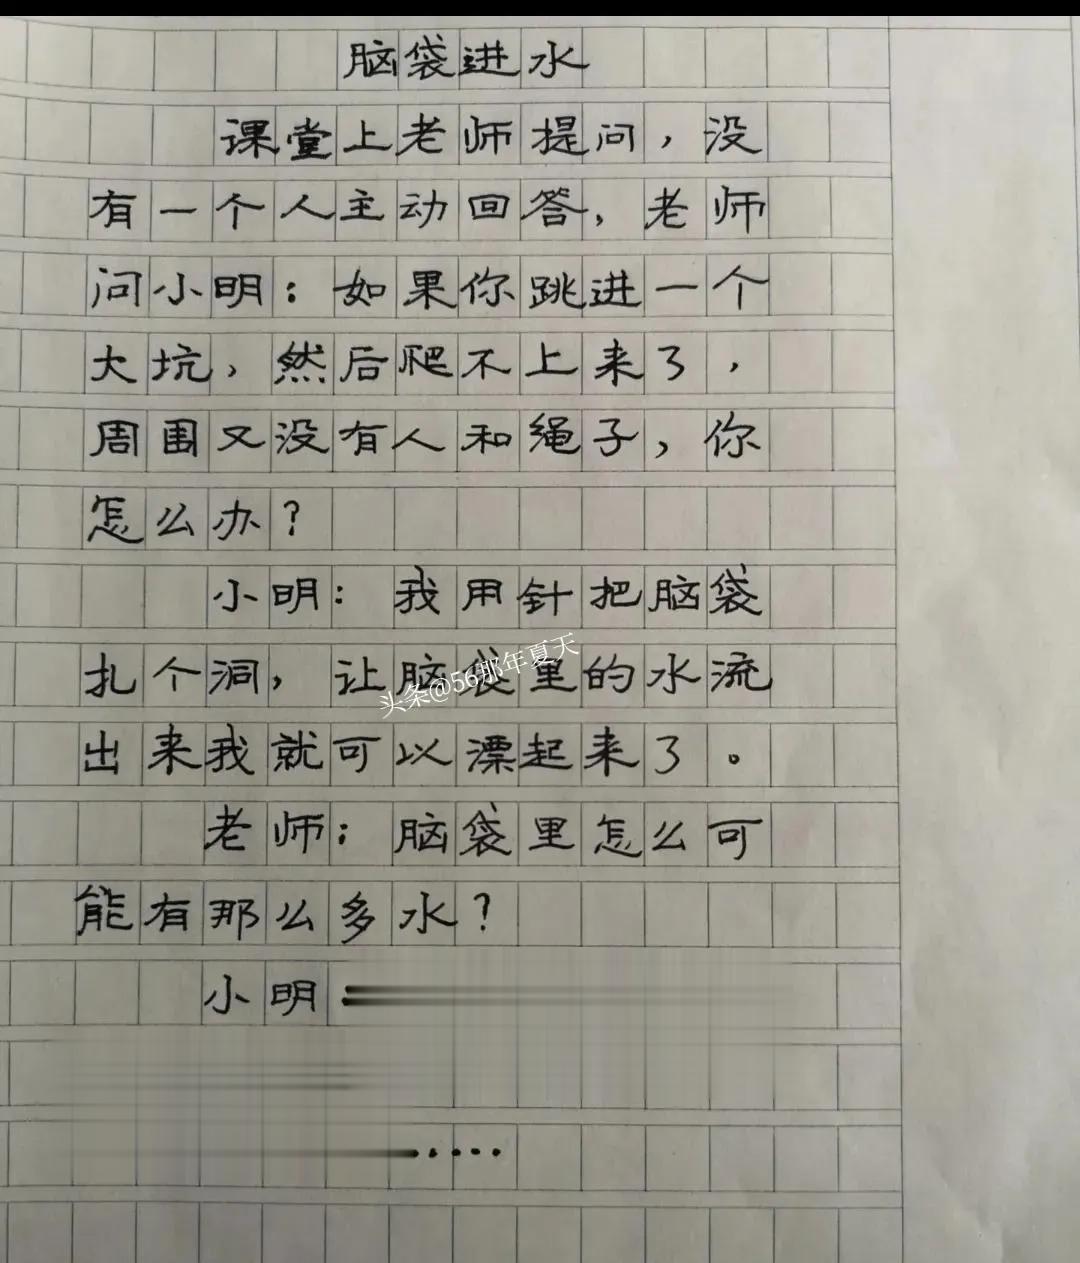 脑袋进水
课堂上老师提问，没
有一个人主动回答，老师
问小明：如果你跳进一个
大坑，然后爬不上来了，
周围又没有人和绳子，你
怎么办？
小明：我用针把脑袋
扎个洞，让脑袋里的水流
头条@56那年夏天
出来我就可以漂起来了。
老师：脑袋里怎么可
能有那么多水？
小明
.....